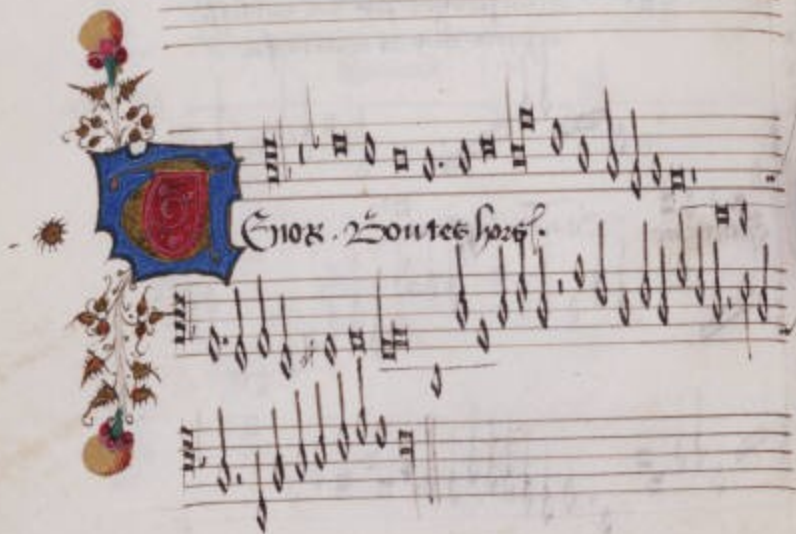 TEnor . Boutes hors .